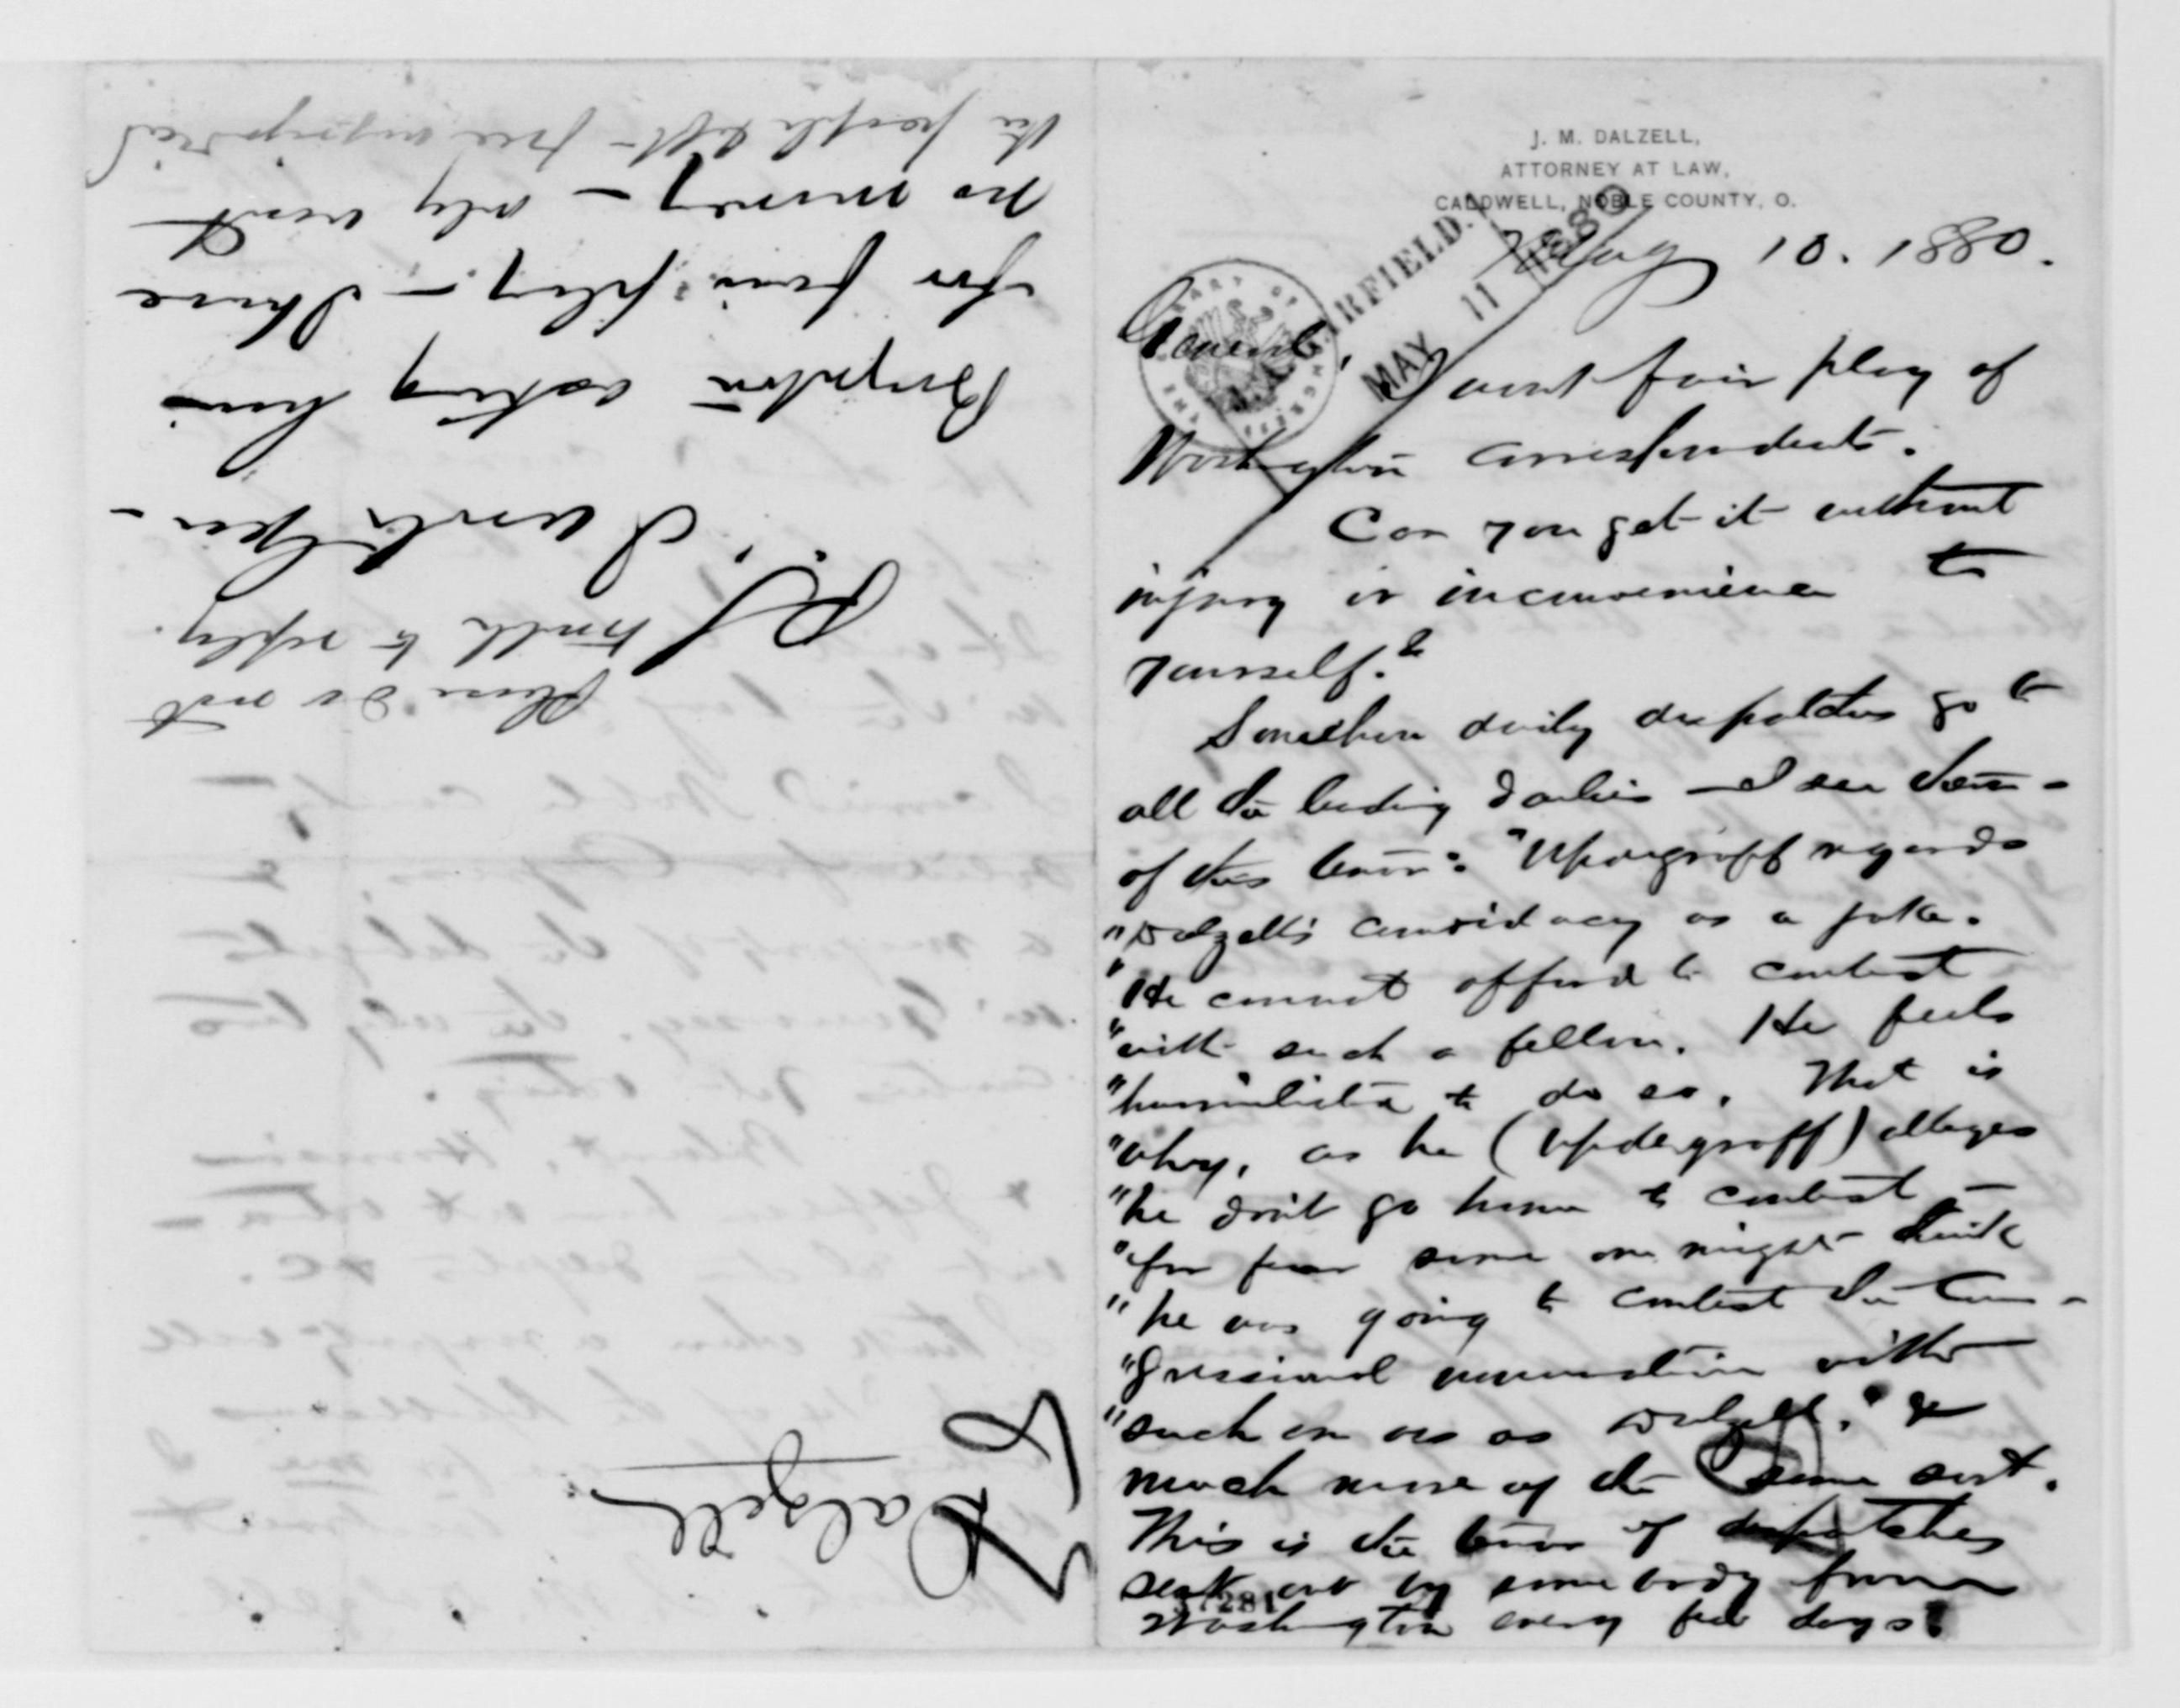 J. M. DALZELL,
ATTORNEY AT LAW,
CALDWELL, NOBLE COUNTY, O.
May 10. 1880.
J. A. GARFIELD.
MAY 11 1880
General,
I want fair play of
Washington correspondents.
Can you get it without
injury or inconvenience to
yourself?
Somehow daily despatches go to
all the leading dailies — I see them -
of this tenor: "Updegraff regards
"Dalzell's candidacy as a joke.
"He cannot afford to contest
"with such a fellow. He feels
"humiliated to do so. That is
"why, as he (Updegraff) alleges
"he don't go home to contest -
"for fear some one might think
"he was going to contest the Con-
"gressional nomination with
"such an ass as Dalzell." &
much more of the same sort.
This is the tenor of despatches
sent out by somebody from
Washington every few days.
37281
Please do not
trouble to reply.
P.S. I write Gen.
Boynton asking him
for fair play. - I have
no money - only want
the people left free
Dalzell